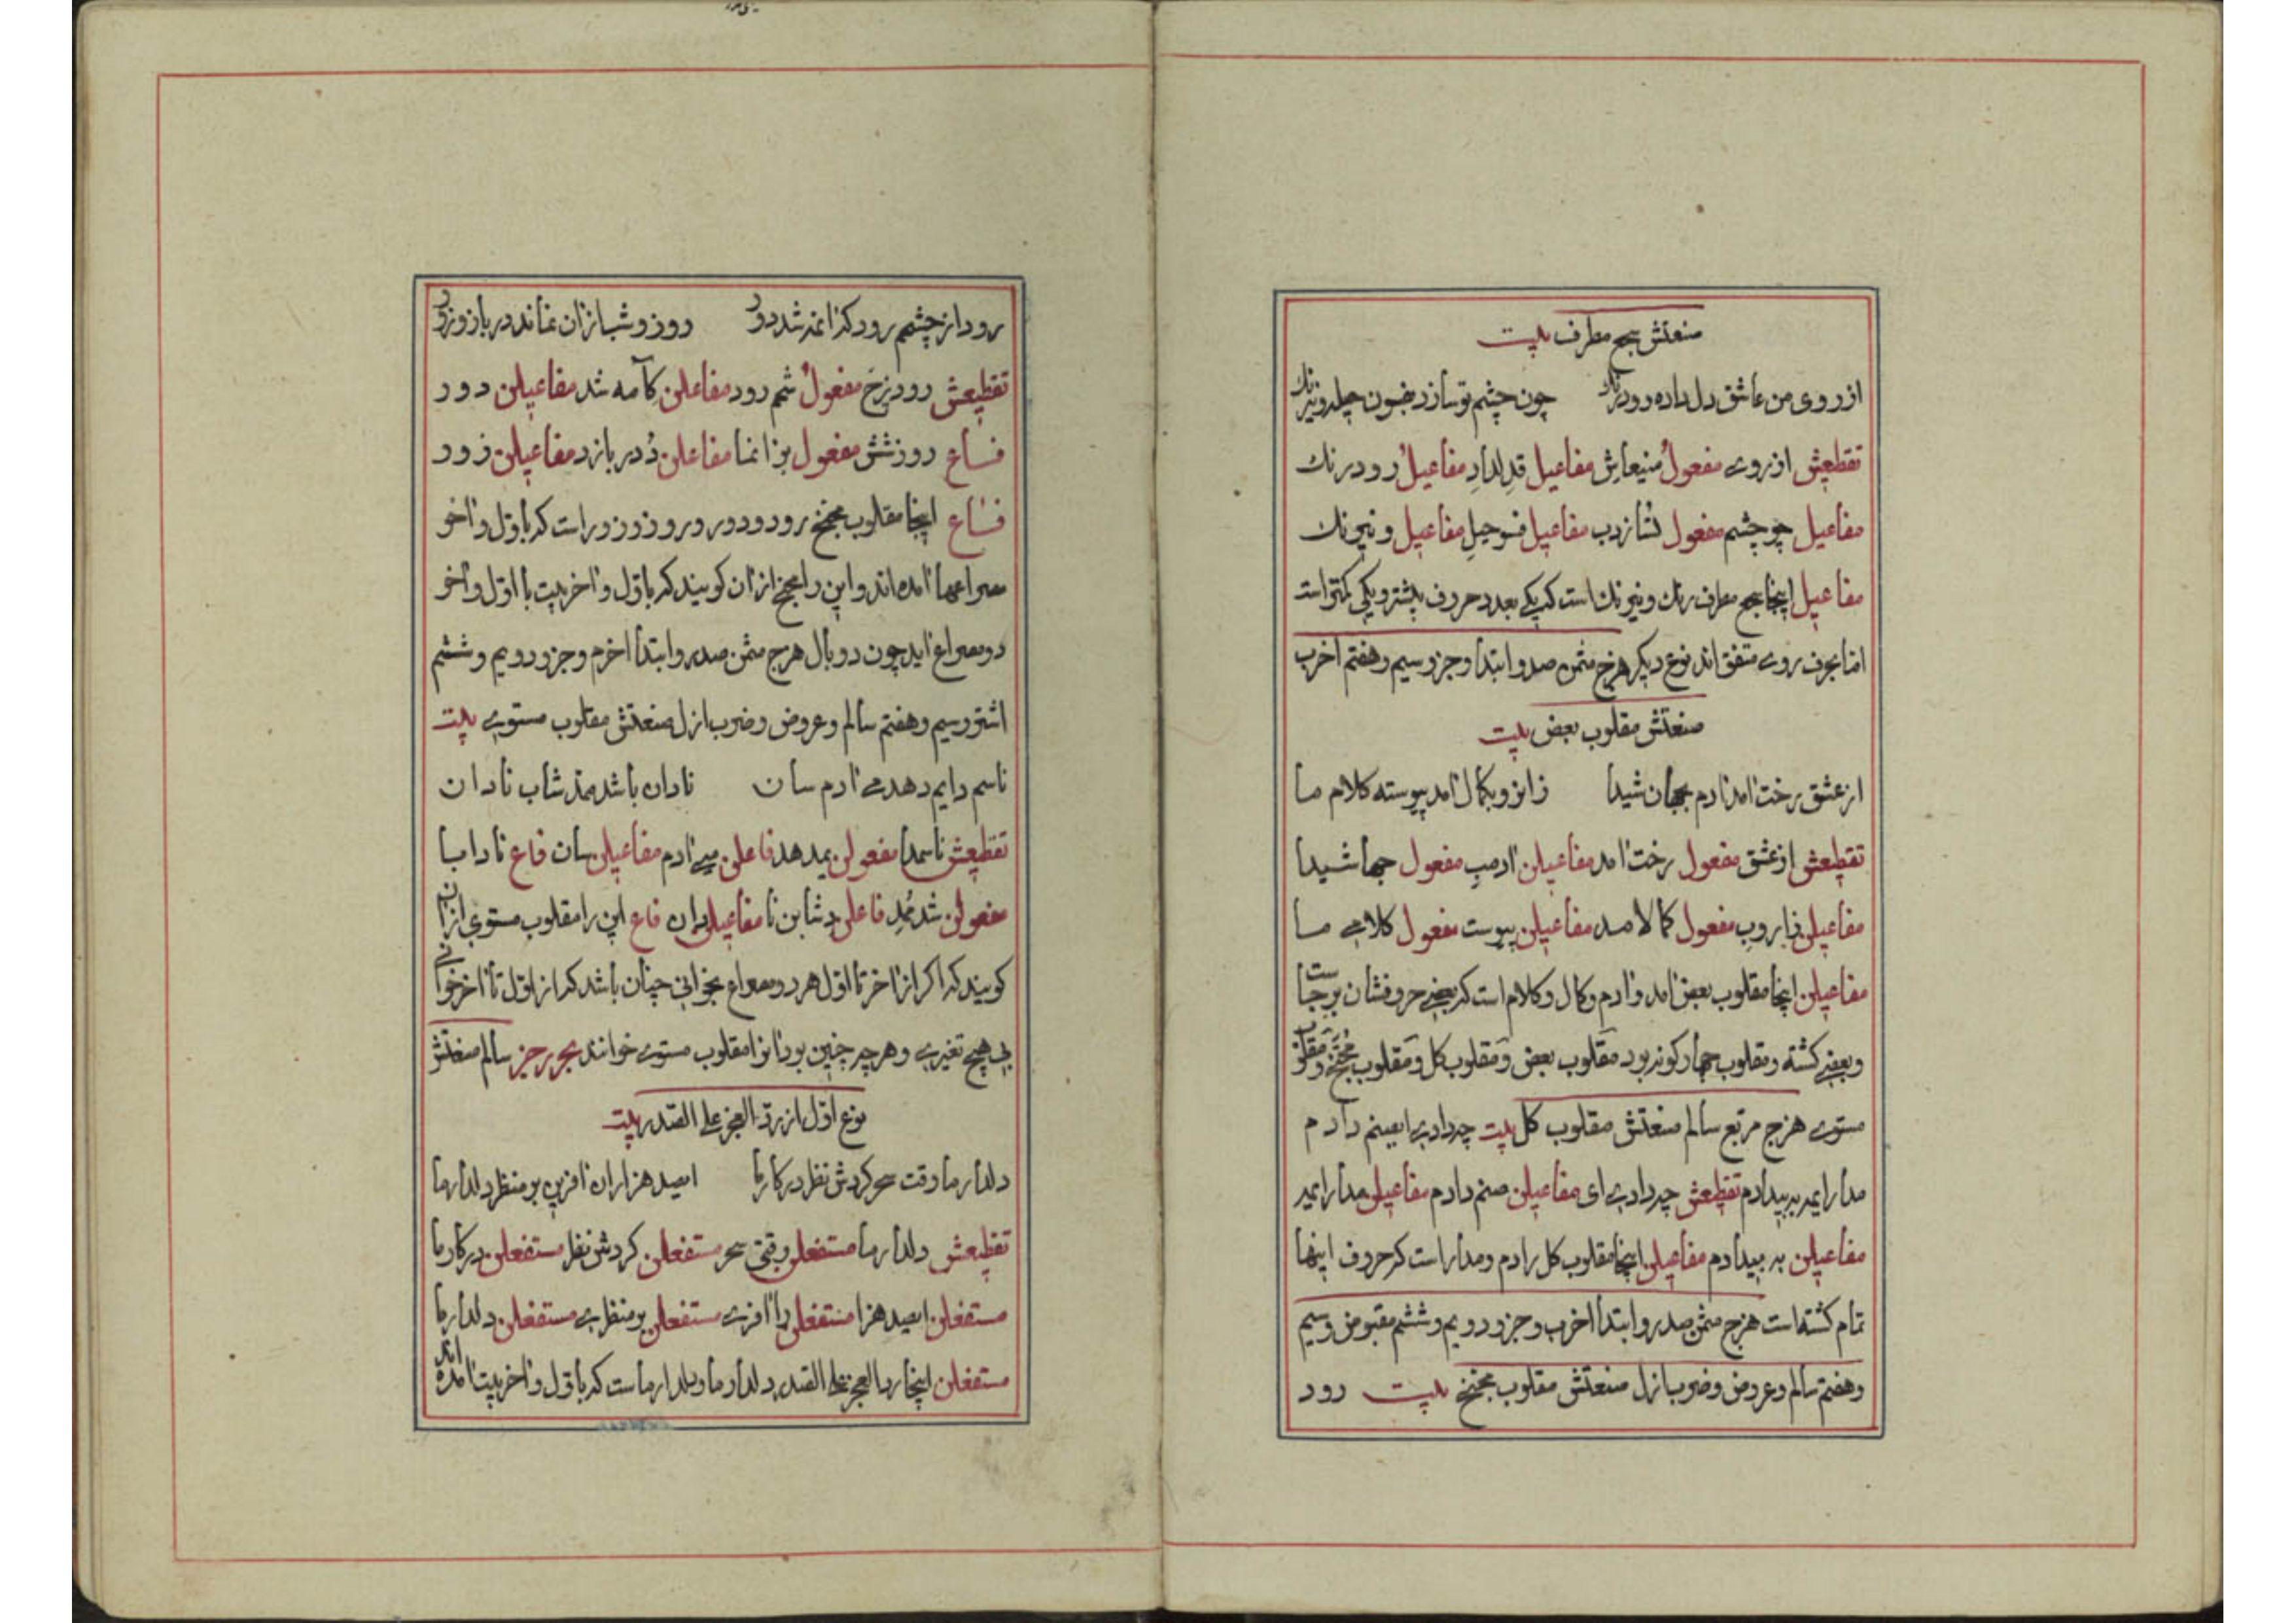 صنعتش سجع مطرف بیت
از روی من عاشق دل داده رود رنک چون چشم تو سازد بفسون حیله و نیرنک
تقطیعش از روے مفعولُ منیعاشِ مفاعیل قدِلدادِ مفاعیلُ رود رنک
مفاعیل چو چشم مفعول تُسازدب مفاعیل فسوحیلِ مفاعیل و نیرنک
مفاعیل اینجا سجع مطرف رنک و نیرنک است که یکے بعدد حروف بیشتر و یکی کمتر است
اما بحرف روے متفق اند نوع دیکر هزج مثمن صدر و ابتدا و جزو سیم و هفتم اخرب
صنعتش مقلوب بعض بیت
از عشق رخت امد ادم بجهان شیدا زانرو بکمال امد پیوسته کلام ما
تقطیعش از عشق مفعول رخت امد مفاعیلن ادمبِ مفعول جها شیدا
مفاعیلن زاروبِ مفعول کمالامد مفاعیلن پیوست مفعول کلامے ما
مفاعیلن اینجا مقلوب بعض امد و ادم و کمال و کلام است که بعضے حروفشان بر جاست
و بعضے کشته و مقلوب چهار کونه بود مقلوب بعض و مقلوب کل و مقلوب مجنّح و مقلوب
مستوے هزج مربع سالم صنعتش مقلوب کل بیت چه دادے ایصنم دادم
مدارا یم به بیدادم تقطیعش چه دادے ای مفاعیلن صنم دادم مفاعیلن مدارا یم
مفاعیلن به بیدادم مفاعیلن اینجا مقلوب کل رادم و مدار است که حروف اینها
تمام کشته است هزج مثمن صدر و ابتدا اخرب و جزو دویم و ششم مقبوض و سیم
و هفتم سالم و عروض و ضرب ازل صنعتش مقلوب مجنح بیت رود
رود از چشمم رود که ان مه شد دور روز و شب از ان نماند در بازو زور
تقطیعش رود زچَ مفعولُ شمم رود مفاعلن کآمه شد مفاعیلن دور
فاع روزشش مفعول بزانما مفاعلن نْد در بازد مفاعیلن زور
فاع اینجا مقلوب مجنح رود و دور و روز و زور است که باول و اخر
مصراعها امده اند و این را مجنح از ان کویند که باول و اخر بیت یا اول و اخر
دو مصراع اید چون دو بال هزج مثمن صدر و ابتدا اخرم و جزو دویم و ششم
اشتر و سیم و هفتم سالم و عروض و ضرب ازل صنعتش مقلوب مستوے بیت
ناسم دایم دهدے ادم سان نادان باشد شاب نادان
تقطیعش ناسمدا مفعولن یمدهد فاعلن مے ادم مفاعیلن سان فاع نادابا
مفعولن شد مْدِ فاعلن دشابنا مفاعیلن دان فاع این را مقلوب مستوی از ان
کویند که اکر از اخر تا اول هر دو مصراع بخوانی چنان باشد که از اول تا اخر خوانی
بے هیچ تغیرے و هر چه چنین بود انرا مقلوب مستوے خوانند بحر رجز سالم صنعتش
نوع اول از رد العجز علی الصدر بیت
دلدار ما وقت سحر کردش نظر در کار ما ایصد هزاران افرین بر منظر دلدار ما
تقطیعش دلدار ما مستفعلن وقتی سحر مستفعلن کردش نظر مستفعلن در کار ما
مستفعلن ایصد هزا مستفعلن را افرے مستفعلن بر منظرے مستفعلن دلدار ما
مستفعلن اینجا رد العجز علی الصدر دلدار ما و دلدار ماست که باول و اخر بیت امده اند